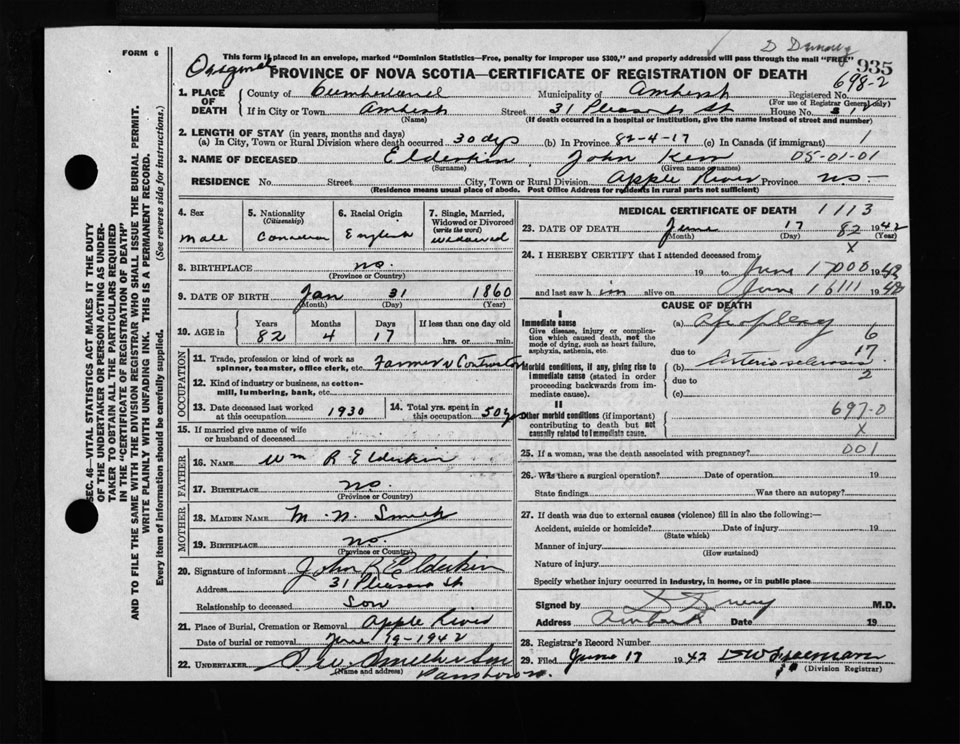 D Drury
FORM 6
This form if placed in an envelope, marked "Dominion Statistics—Free, penalty for improper use $300," and properly addressed will pass through the mail "FREE"
935
Original
PROVINCE OF NOVA SCOTIA—CERTIFICATE OF REGISTRATION OF DEATH
698-2
1. PLACE OF DEATH
County of Cumberland Municipality of Amherst Registered No.
(For use of Registrar General only)
If in City or Town Amherst Street 31 Pleasant St House No. 31
(Name) (If death occurred in a hospital or institution, give the name instead of street and number)
2. LENGTH OF STAY (in years, months and days)
(a) In City, Town or Rural Division where death occurred 30 dys (b) In Province 82-4-17 (c) In Canada (if immigrant) 1
3. NAME OF DECEASED Elderkin John 05-01-01
(Surname) (Given name or names)
RESIDENCE No. Street City, Town or Rural Division Apple River Province N.S.
(Residence means usual place of abode. Post Office Address for residents in rural parts not sufficient)
4. Sex
Male
5. Nationality
(Citizenship)
Canadian
6. Racial Origin
English
7. Single, Married, Widowed or Divorced
(write the word)
Widowed
8. BIRTHPLACE N.S.
(Province or Country)
9. DATE OF BIRTH Jan 31 1860
(Month) (Day) (Year)
10. AGE in Years Months Days If less than one day old
82 4 17 hrs. or min.
OCCUPATION
11. Trade, profession or kind of work as spinner, teamster, office clerk, etc. Farmer & Contractor
12. Kind of industry or business, as cotton-mill, lumbering, bank, etc.
13. Date deceased last worked at this occupation 1930
14. Total yrs. spent in this occupation 50 yrs
15. If married give name of wife or husband of deceased
FATHER
16. NAME Wm R Elderkin
17. BIRTHPLACE N.S.
(Province or Country)
MOTHER
18. MAIDEN NAME M. N. Smith
19. BIRTHPLACE N.S.
(Province or Country)
20. Signature of informant John R Elderkin
Address 31 Pleasant St
Relationship to deceased Son
21. Place of Burial, Cremation or Removal Apple River
Date of burial or removal June 19-1942
22. UNDERTAKER Smith & Son
(Name and address)
Parrsboro N.S.
MEDICAL CERTIFICATE OF DEATH 1113
23. DATE OF DEATH June 17 82 1942
(Month) (Day) (Year)
X
24. I HEREBY CERTIFY that I attended deceased from
19 to June 17 000 1942
and last saw him alive on June 16 111 1942
CAUSE OF DEATH
I
Immediate cause
Give disease, injury or complication which caused death, not the mode of dying, such as heart failure, asphyxia, asthenia, etc.
(a) Apoplexy
6
due to 17
Morbid conditions, if any, giving rise to immediate cause (stated in order proceeding backwards from immediate cause).
(b) Arteriosclerosis
due to 2
(c)
II
Other morbid conditions (if important) contributing to death but not causally related to immediate cause.
697-0
X
25. If a woman, was the death associated with pregnancy? 001
26. Was there a surgical operation? Date of operation 19
State findings Was there an autopsy?
27. If death was due to external causes (violence) fill in also the following:—
Accident, suicide or homicide? Date of injury 19
(State which)
Manner of injury
(How sustained)
Nature of injury
Specify whether injury occurred in industry, in home, or in public place
Signed by D Drury M.D.
Address Amherst Date 19
28. Registrar's Record Number
29. Filed June 17 1942
(Division Registrar)
SEC. 46—VITAL STATISTICS ACT MAKES IT THE DUTY
OF THE UNDERTAKER OR PERSON ACTING AS UNDER-
TAKER TO OBTAIN ALL THE PARTICULARS REQUIRED
IN THE "CERTIFICATE OF REGISTRATION OF DEATH"
AND TO FILE THE SAME WITH THE DIVISION REGISTRAR WHO SHALL ISSUE THE BURIAL PERMIT.
WRITE PLAINLY WITH UNFADING INK. THIS IS A PERMANENT RECORD.
Every item of information should be carefully supplied. (See reverse side for instructions.)